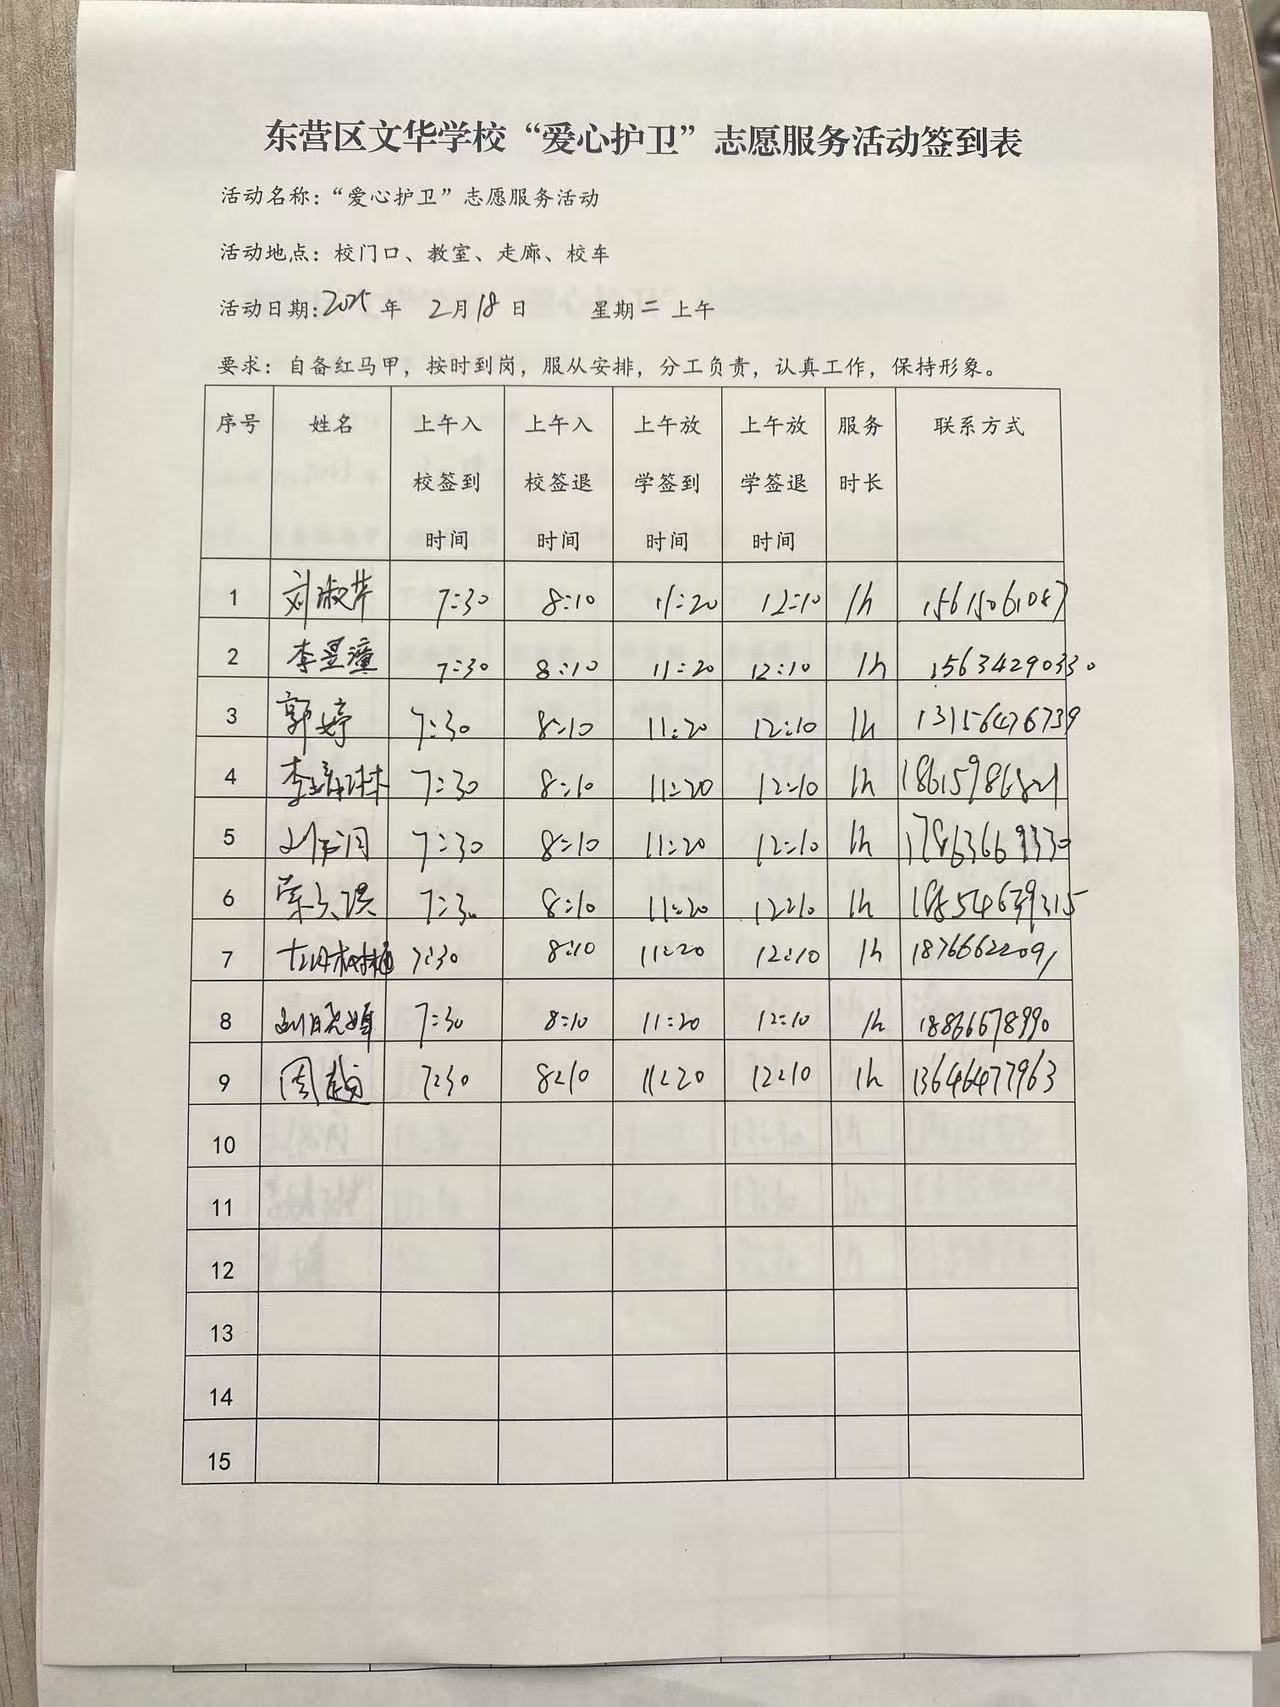 东营区文华学校“爱心护卫”志愿服务活动签到表
活动名称：“爱心护卫”志愿服务活动
活动地点：校门口、教室、走廊、校车
活动日期：2025年 2月18日 星期二 上午
要求：自备红马甲，按时到岗，服从安排，分工负责，认真工作，保持形象。
序号 姓名 上午入校签到时间 上午入校签退时间 上午放学签到时间 上午放学签退时间 服务时长 联系方式
1 刘淑芹 7:30 8:10 11:20 12:10 1h 15615061087
2 李昱潼 7:30 8:10 11:20 12:10 1h 15634290330
3 郭婷 7:30 8:10 11:20 12:10 1h 13156476739
4 7:30 8:10 11:20 12:10 1h
5 7:30 8:10 11:20 12:10 1h
6 7:30 8:10 11:20 12:10 1h
7 7:30 8:10 11:20 12:10 1h 18766622091
8 7:30 8:10 11:20 12:10 1h 18866678990
9 7:30 8:10 11:20 12:10 1h 13646477963
10
11
12
13
14
15